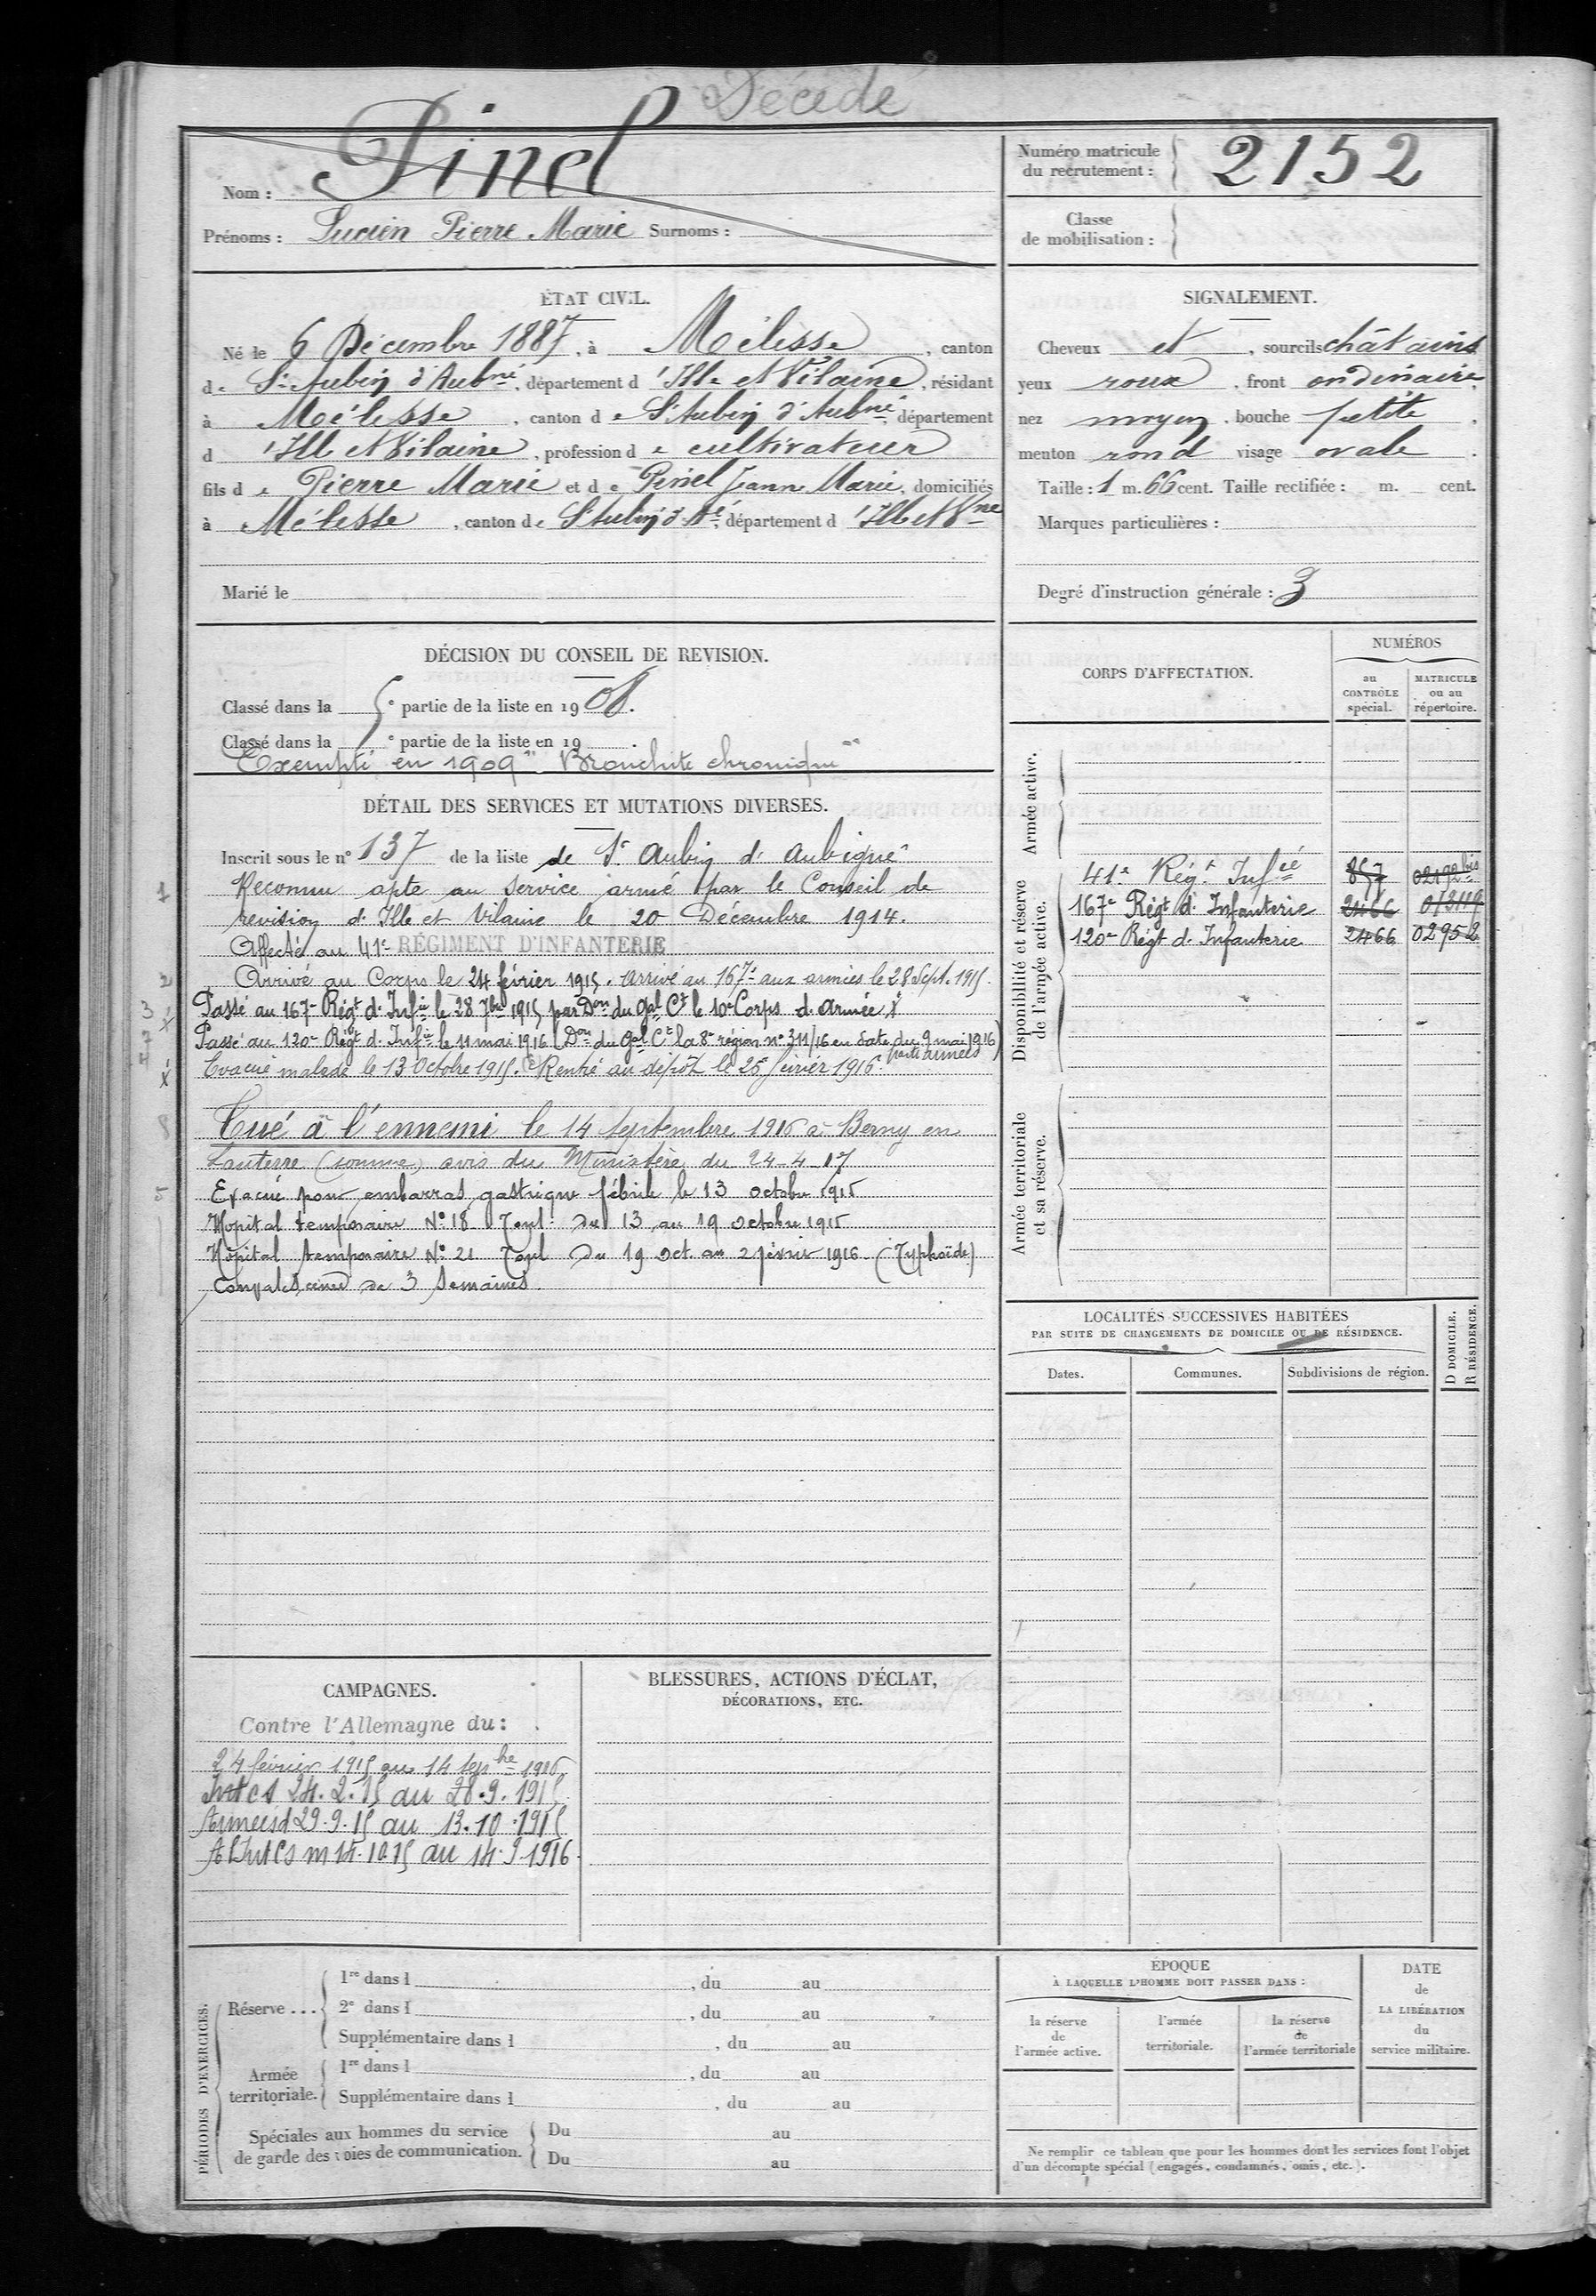 Décédé
Nom : Pinel
Prénoms : Lucien Pierre Marie Surnoms :
Numéro matricule
du recrutement : 2152
Classe
de mobilisation :
ÉTAT CIVIL.
Né le 6 Décembre 1887, à Mélesse, canton
de St Aubin d'Aubné, département d'Ille et Vilaine, résidant
à Mélesse, canton de St Aubin d'Aubné, département
d'Ille et Vilaine, profession de cultivateur
fils de Pierre Marie et de Pinel Jeanne Marie, domiciliés
à Mélesse, canton de St Aubin d'Aé, département d'Ille et Vne
Marié le
SIGNALEMENT.
Cheveux et, sourcils châtains
yeux roux, front ordinaire,
nez moyen, bouche petite,
menton rond visage ovale.
Taille : 1 m. 66 cent. Taille rectifiée : m. cent.
Marques particulières :
Degré d'instruction générale : 3
DÉCISION DU CONSEIL DE REVISION.
Classé dans la 5e partie de la liste en 1908.
Classé dans la e partie de la liste en 19 .
Exempté en 1909 "Bronchite chronique"
DÉTAIL DES SERVICES ET MUTATIONS DIVERSES.
Inscrit sous le n° 137 de la liste de St Aubin d'Aubigné
Reconnu apte au service armé par le Conseil de
revision d'Ille et Vilaine le 20 Décembre 1914.
Affecté au 41e RÉGIMENT D'INFANTERIE
Arrivé au Corps le 24 février 1915. arrivé au 167e aux armées le 28 Sept. 1915.
Passé au 167e Régt d'Infie le 28 7bre 1915 par Don du Gal Ct le 10e Corps d'armée
Passé au 120e Régt d'Infie le 11 mai 1916 (Don du Gal Ct la 8e région n° 311/16 en date du 9 mai 1916)
parti armées
Evacué malade le 13 Octobre 1915. Rentré au dépôt le 25 février 1916.
Tué à l'ennemi le 14 septembre 1916 à Berny en
Santerre (somme) avis du Ministère du 24-4-17
Evacué pour embarras gastrique fébrile le 13 octobre 1915
Hopital temporaire N° 18 Toul du 13 au 19 octobre 1915
Hôpital temporaire N° 21 Toul du 19 oct. au 2 février 1916 (Typhoïde)
Convalescence de 3 semaines.
CORPS D'AFFECTATION.
NUMÉROS
au
CONTRÔLE
spécial.
MATRICULE
ou au
répertoire.
Armée active.
Disponibilité et réserve
de l'armée active.
41e Régt Infie 857 02192 bis
167e Régt d'Infanterie 2466
120e Régt d'Infanterie 2466 02952
Armée territoriale
et sa réserve.
LOCALITÉS SUCCESSIVES HABITÉES
PAR SUITE DE CHANGEMENTS DE DOMICILE OU DE RÉSIDENCE.
Dates.
Communes.
Subdivisions de région.
D DOMICILE.
R RÉSIDENCE.
CAMPAGNES.
Contre l'Allemagne du :
24 février 1915 au 14 sepbre 1916
24.2.15 au 28.9.1915
Armées d 29.9.15 au 13.10.1915
14.10.15 au 14.9.1916
BLESSURES, ACTIONS D'ÉCLAT,
DÉCORATIONS, ETC.
PÉRIODES D'EXERCICES.
Réserve ...
1re dans l , du au
2e dans l , du au
Supplémentaire dans l , du au
Armée
territoriale.
1re dans l , du au
Supplémentaire dans l , du au
Spéciales aux hommes du service
de garde des voies de communication.
Du au
Du au
ÉPOQUE
À LAQUELLE L'HOMME DOIT PASSER DANS :
la réserve
de
l'armée active.
l'armée
territoriale.
la réserve
de
l'armée territoriale
DATE
de
LA LIBÉRATION
du
service militaire.
Ne remplir ce tableau que pour les hommes dont les services font l'objet
d'un décompte spécial (engagés, condamnés, omis, etc.).